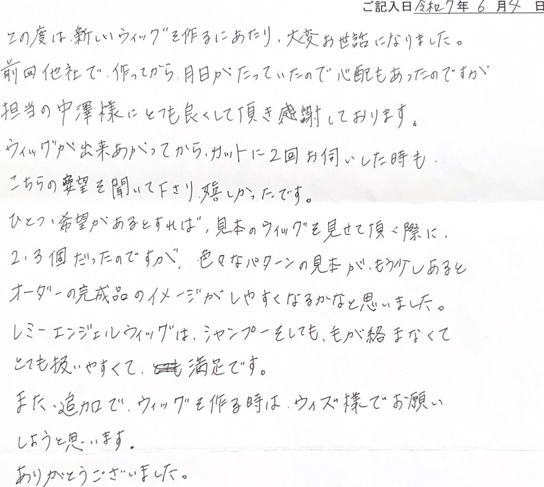 ご記入日 令和7年 6月4日
この度は、新しいウィッグを作るにあたり、大変お世話になりました。
前回他社で、作ってから、月日がたっていたので心配もあったのですが
担当の中澤様にとても良くして頂き感謝しております。
ウィッグが出来あがってから、カットに2回お伺いした時も、
こちらの要望を聞いて下さり、嬉しかったです。
ひとつ、希望があるとすれば、見本のウィッグを見せて頂く際に、
2、3個だったのですが、色々なパターンの見本が、もう少しあると
オーダーの完成品のイメージがしやすくなるかなと思いました。
レミーエンジェルウィッグは、シャンプーをしても、毛が絡まなくて
とても扱いやすくて、満足です。
また、追加で、ウィッグを作る時は、ウィズ様でお願い
しようと思います。
ありがとうございました。